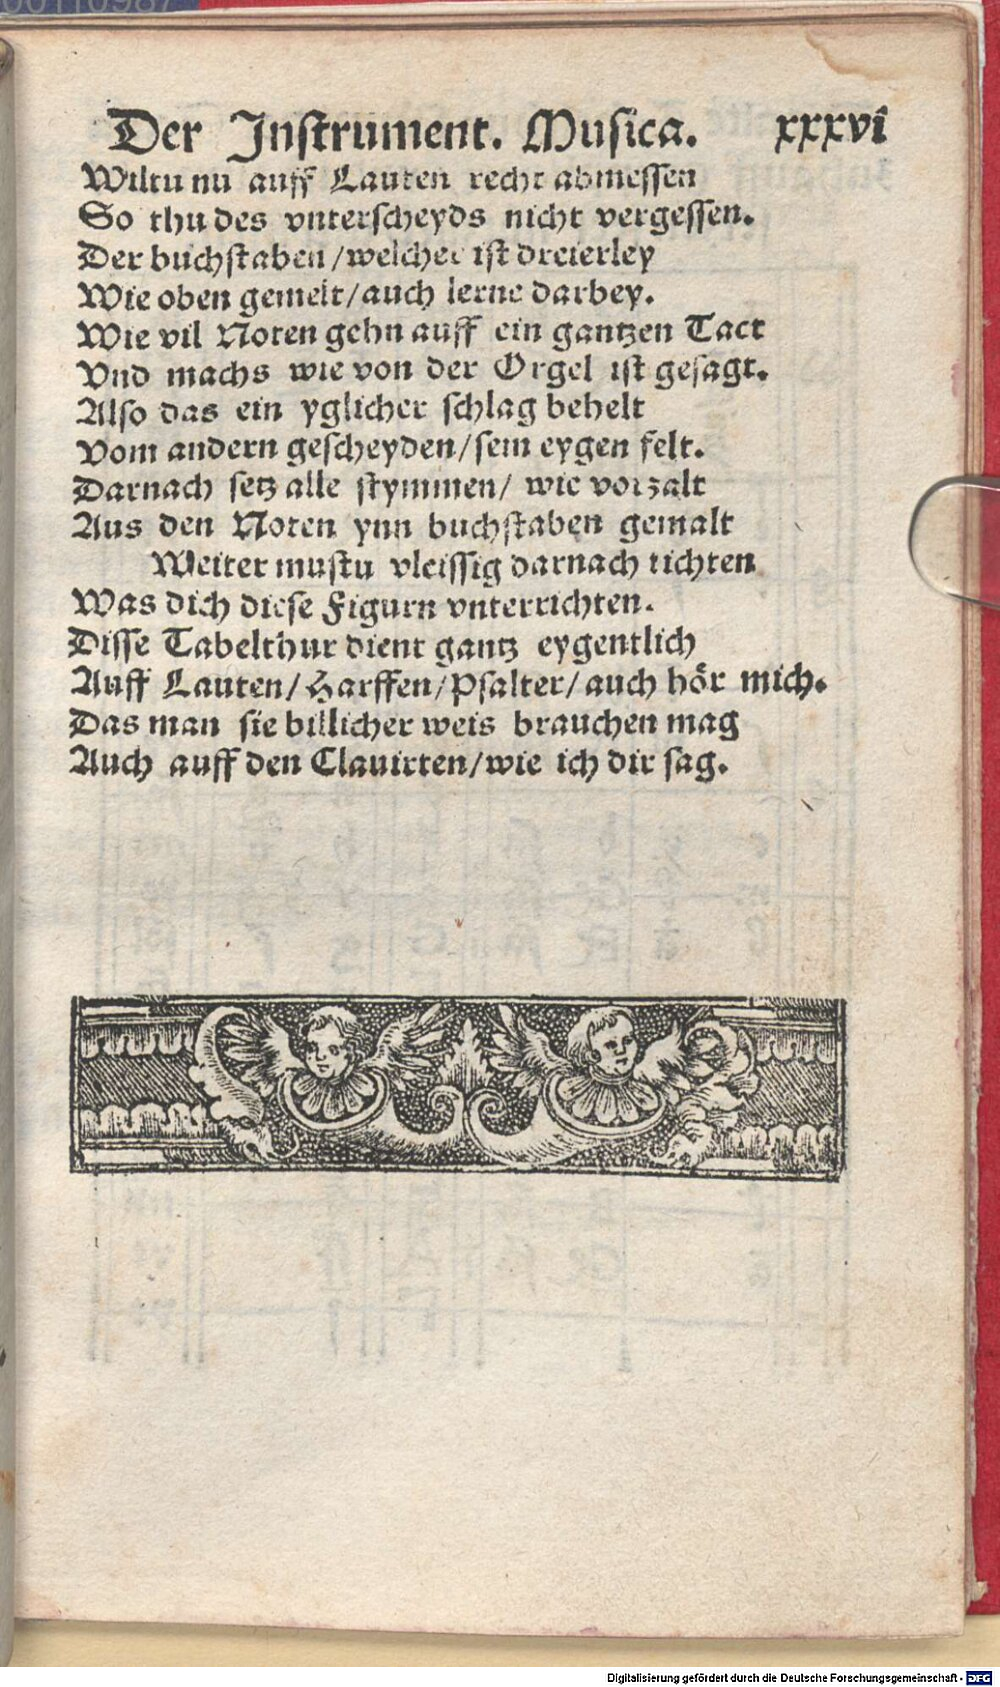 00110987
Der Instrument. Musica. xxxvi
Wiltu nu auff Lauten recht abmessen
So thu des vnterscheyds nicht vergessen.
Der buchstaben / welcher ist dreierley
Wie oben gemelt / auch lerne darbey.
Wie vil Noten gehn auff ein gantzen Tact
Vnd machs wie von der Orgel ist gesagt.
Also das ein yglicher schlag behelt
Vom andern gescheyden / sein eygen felt.
Darnach setz alle stymmen / wie vorzalt
Aus den Noten ynn buchstaben gemalt
Weiter mustu vleissig darnach tichten
Was dich diese Figurn vnterrichten.
Disse Tabelthur dient gantz eygentlich
Auff Lauten / Harffen / Psalter / auch hör mich.
Das man sie billicher weis brauchen mag
Auch auff den Clauirten / wie ich dir sag.
Digitalisierung gefördert durch die Deutsche Forschungsgemeinschaft - DFG